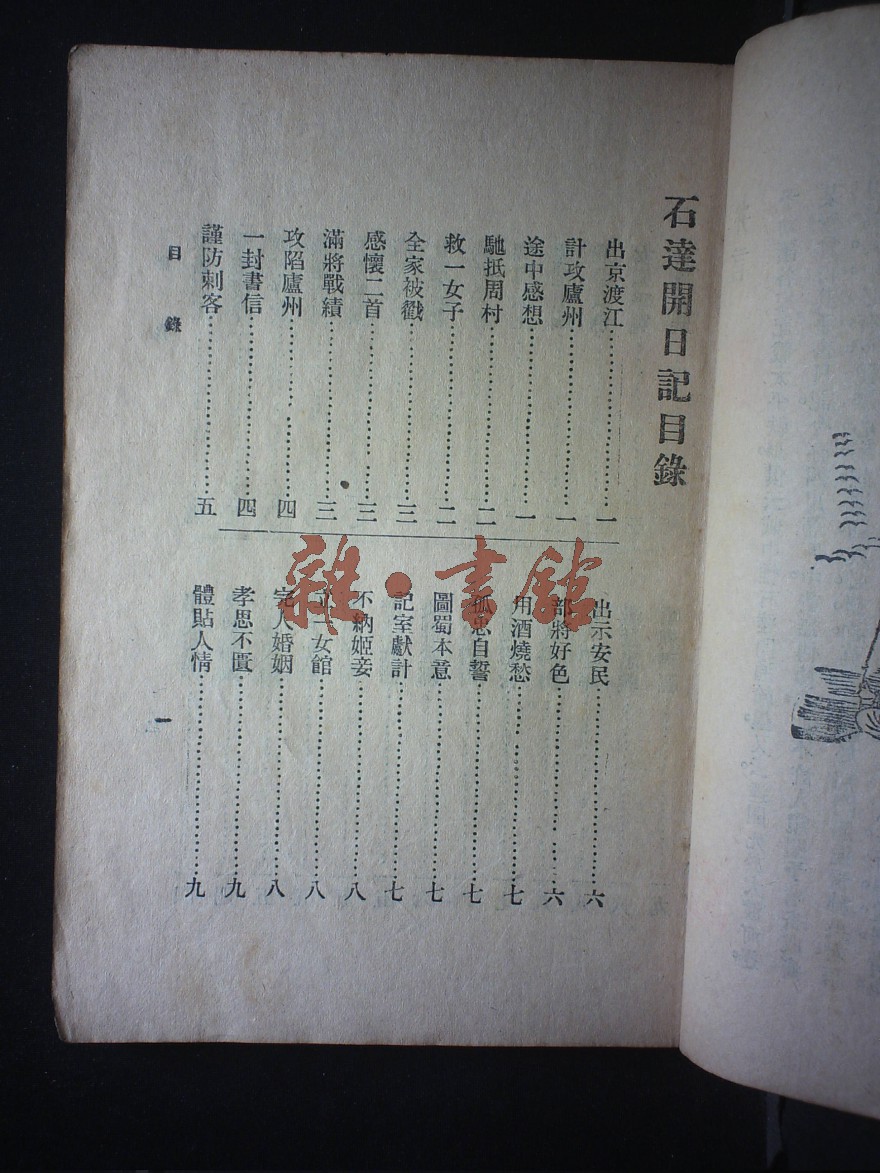 石達開日記目錄
出京渡江…………一
計攻廬州…………一
途中感想…………一
馳抵周村…………二
救一女子…………二
全家被戳…………三
感懷二首…………三
滿將戰績…………三
攻陷廬州…………四
一封書信…………四
謹防刺客…………五
出示安民…………六
部將好色…………六
用酒燒愁…………七
孤忠自誓…………七
圖蜀本意…………七
記室獻計…………七
不納姬妾…………八
立一女館…………八
完人婚姻…………八
孝思不匱…………九
體貼人情…………九
目錄
一
雜·書館